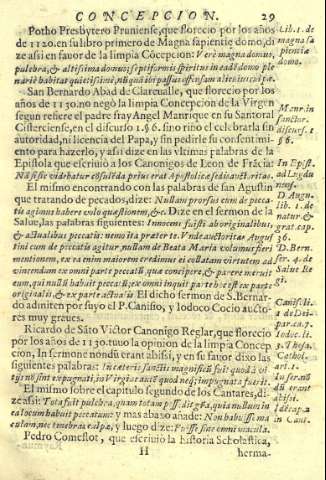 CONCEPCION. 29
Potho Presbytero Pruniense, que florecio por los años
de 1120. en su libro primero de Magna sapientiæ domo, di
ze assi en favor de la limpia Cõcepcion: Veri magna domus,
pulchra, & altissima domus septiformis spiritus in eadē domo ple
nariè habitat quietissimè, nūquā ibi passus offensam alicuius culpæ.
San Bernardo Abad de Clareualle, que florecio por los
años de 1130. no negò la limpia Concepcion de la Virgen
segun refiere el padre fray Angel Manrique en su Santoral
Cisterciense, en el discurso 1. §6. sino riño el celebrarla sin
autoridad, ni licencia del Papa, y sin pedirle su consentimi
ento para hazerlo, y assi dize en las vltimas palabras de la
Epistola que escriuiò a los Canonigos de Leon de Frācia:
Nā si sic videbatur cōsulēda prius erat Apostolicæ sedis auctoritas.
El mismo encontrando con las palabras de san Agustin
que tratando de pecados, dize: Nullam prorsus cum de pecca-
tis agimus habere volo quæstionem, &c. Dize en el sermon de la
Salue, las palabras siguientes: Innocens fuisti ab originalibus
& actualibus peccatis: nemo ita præter te. Vnde auctoritas Augus
tini cum de peccatis agitur, nullam de Beata Maria volumus fieri
mentionem, ex ea enim maiorem credimus ei collatam virtutem ad
vincendum ex omni parte peccatū, quæ concipere, & parere meruit
eum, qui nullū habuit peccatū; ex omni inquit parte hoc est ex parte
originalis, & ex parte actualis. El dicho sermon de S. Bernar-
do admiten por suyo el P. Canisio, y Iodoco Cocio aucto-
res muy graues.
Ricardo de Sāto Victor Canonigo Reglar, que florecio
por los años de 1130. tuuo la opinion de la limpia Concep
cion, In sermone nondū erant abissi, y en su fauor dixo las
siguientes palabras: In cæteris sanctis magnificū fuit quod à vi
tijs nō sint expugnati, in Virgine autē quod neq; impugnata fuerit.
El mismo sobre el capitulo segundo de los Cantares, di-
ze assi: Tota fuit pulchra, quam totam poss. dit gr̃a, quia nullum in
ea locum habuit peccatum: y mas abaxo añade: Non habuisse ma
culam, nec tenebras culpæ, y luego dize: Fuisse sine omni macula.
Pedro Comestor, que escriuiò la historia Scholastica,
H herma-
Lib. 1. de
magna sa
pientiæ
domo.
Manr. in
sanctor.
discurs. 1
§6.
In Epist.
ad Lugdu
nens.
D. Aug.
lib. 1. de
natur. &
grat. cap.
36.
D. Bern.
ser. 4. de
Salue Re
gi.
Canis. li.
1. de Dei-
pa. ca. 7.
Iodoc. li.
3. Thesa.
Cathol.
art. 1.
In ser. nō
dū erant
abissi.
Idē cap. 2
in Cant.